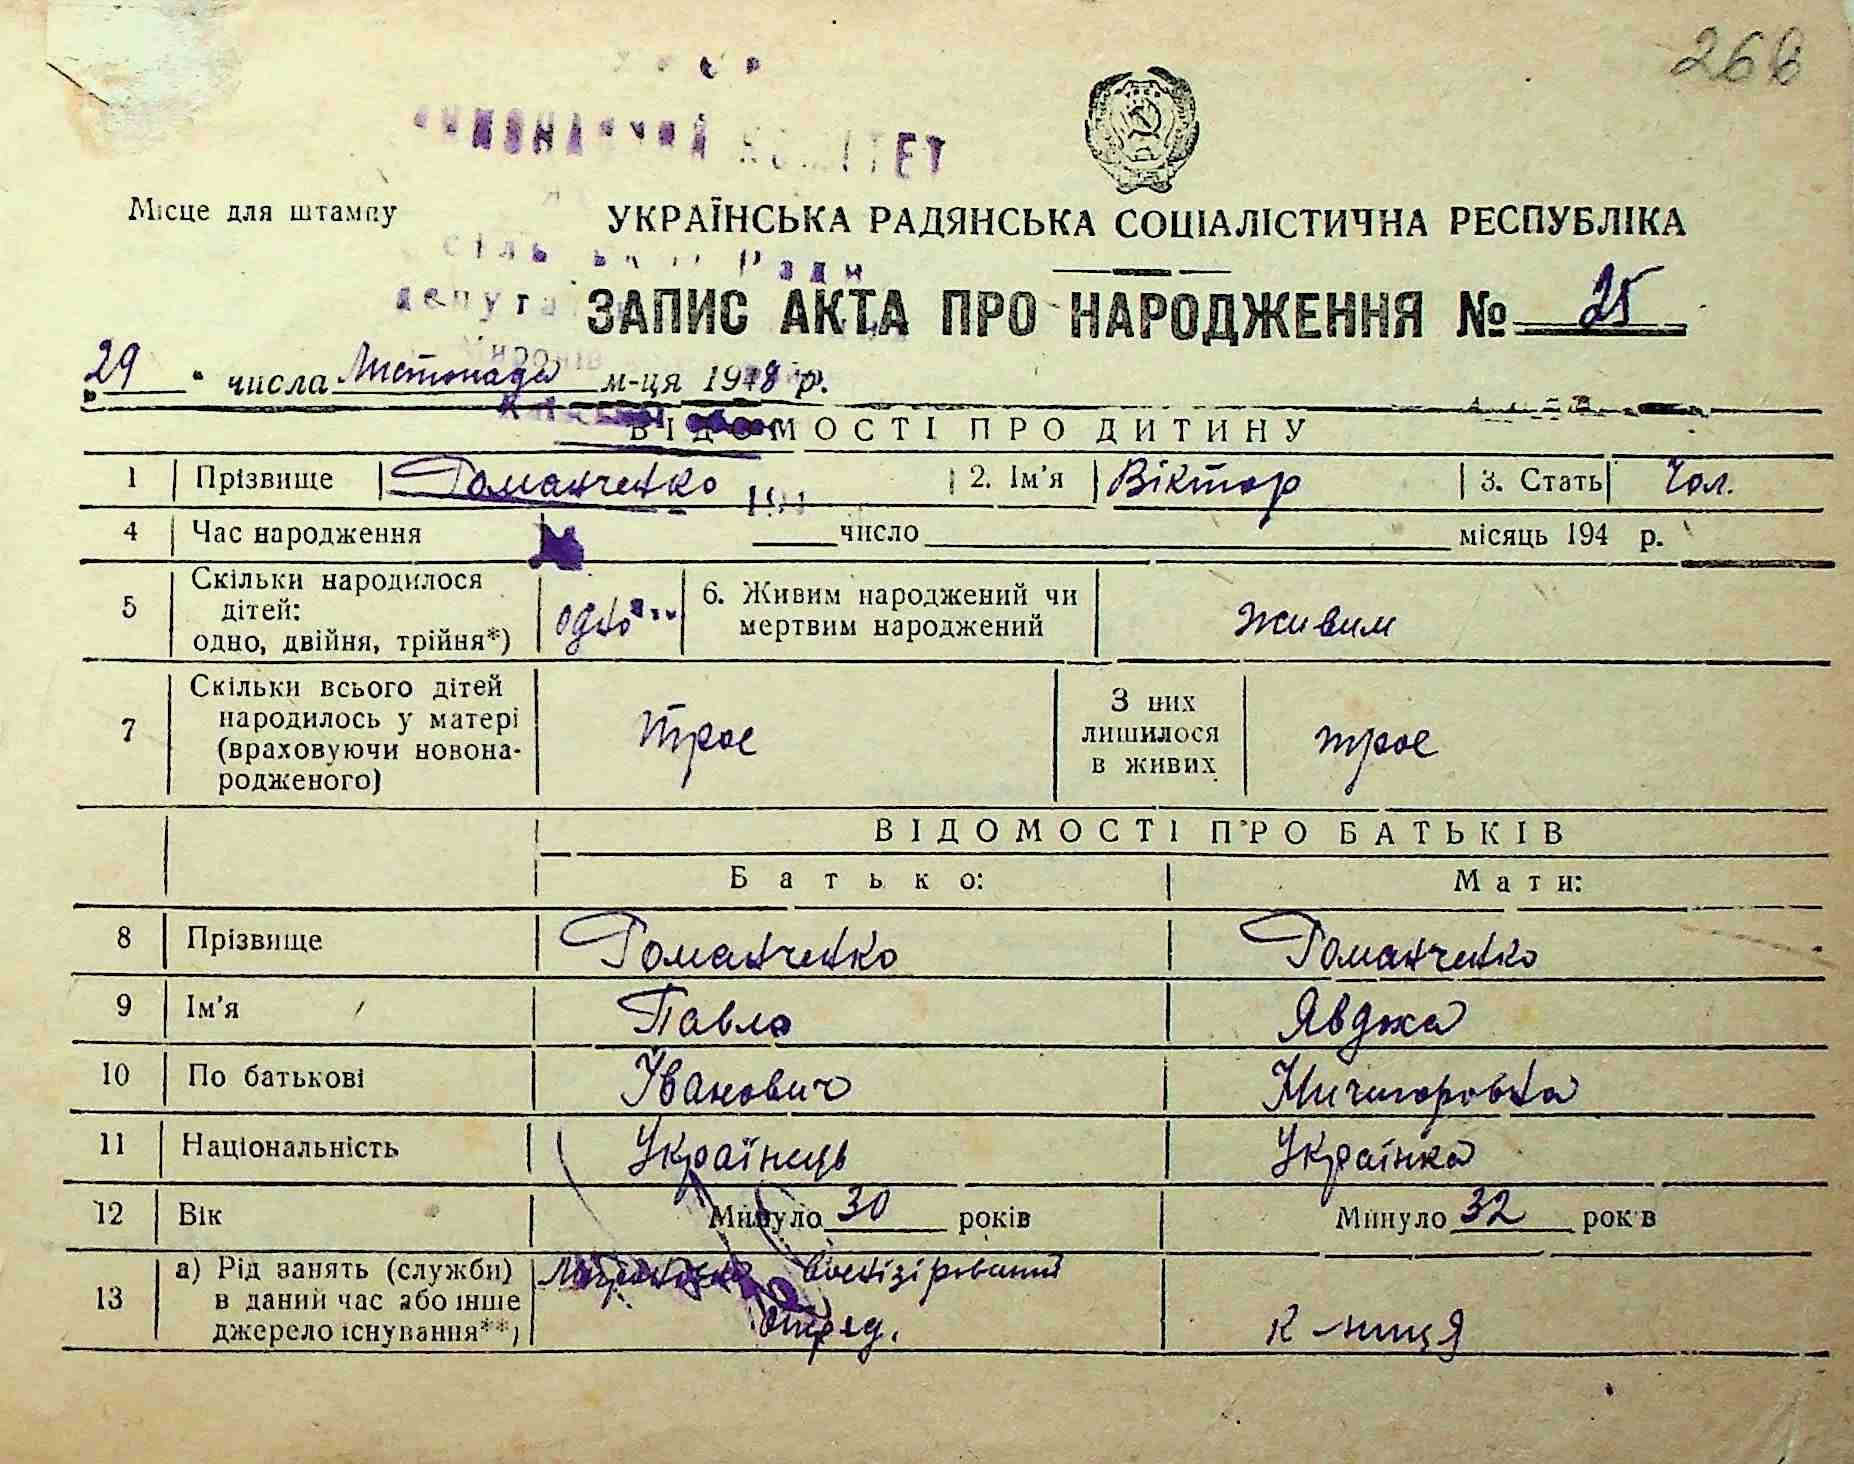 268
КОМІТЕТ
Місце для штампу
УКРАЇНСЬКА РАДЯНСЬКА СОЦІАЛІСТИЧНА РЕСПУБЛІКА
Ради
ЗАПИС АКТА ПРО НАРОДЖЕННЯ № 25
„29" числа Листопада м-ця 1948 р.
ВІДОМОСТІ ПРО ДИТИНУ
1 Прізвище Романченко 2. Ім'я Віктор 3. Стать Чол.
4 Час народження число місяць 194 р.
5 Скільки народилося дітей: одно, двійня, трійня*) одно 6. Живим народжений чи мертвим народжений живим
7 Скільки всього дітей народилось у матері (враховуючи новона-родженого) трое З них лишилося в живих трое
ВІДОМОСТІ ПРО БАТЬКІВ
Батько: Мати:
8 Прізвище Романченко Романченко
9 Ім'я Павло Явдоха
10 По батькові Іванович Ничипоровна
11 Національність Українець Українка
12 Вік Минуло 30 років Минуло 32 років
13 а) Рід занять (служби) в даний час або інше джерело існування**) к-ниця